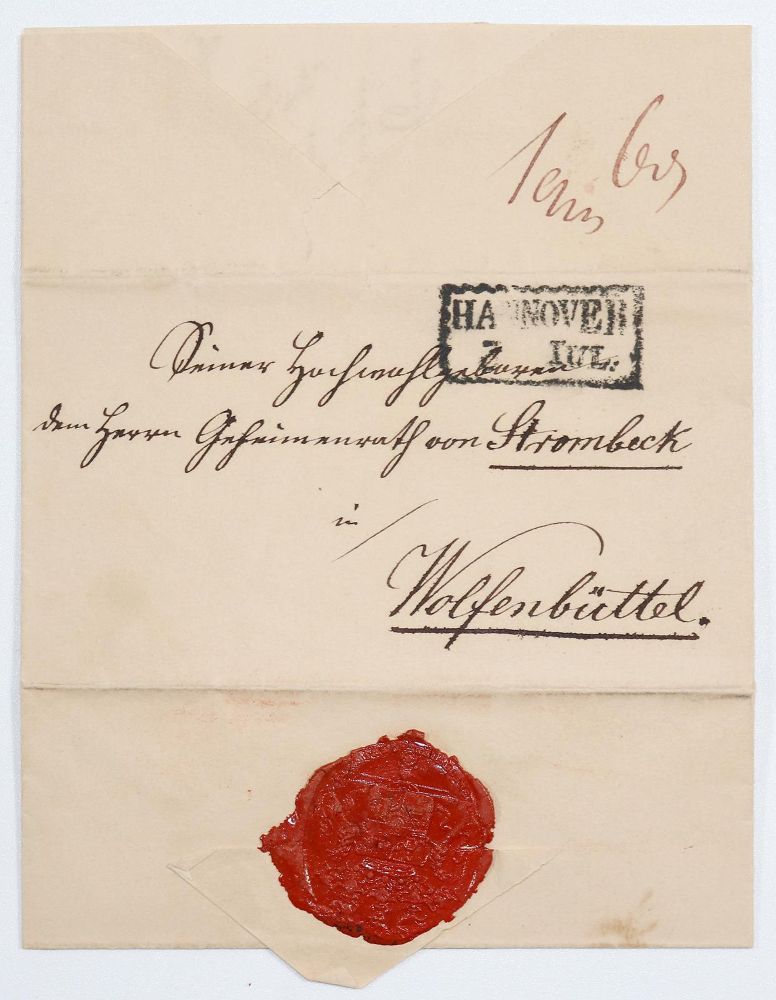 HANNOVER
7 IUL.
Seiner Hochwohlgeboren
dem Herrn Geheimenrath von Strombeck
in
Wolfenbüttel.